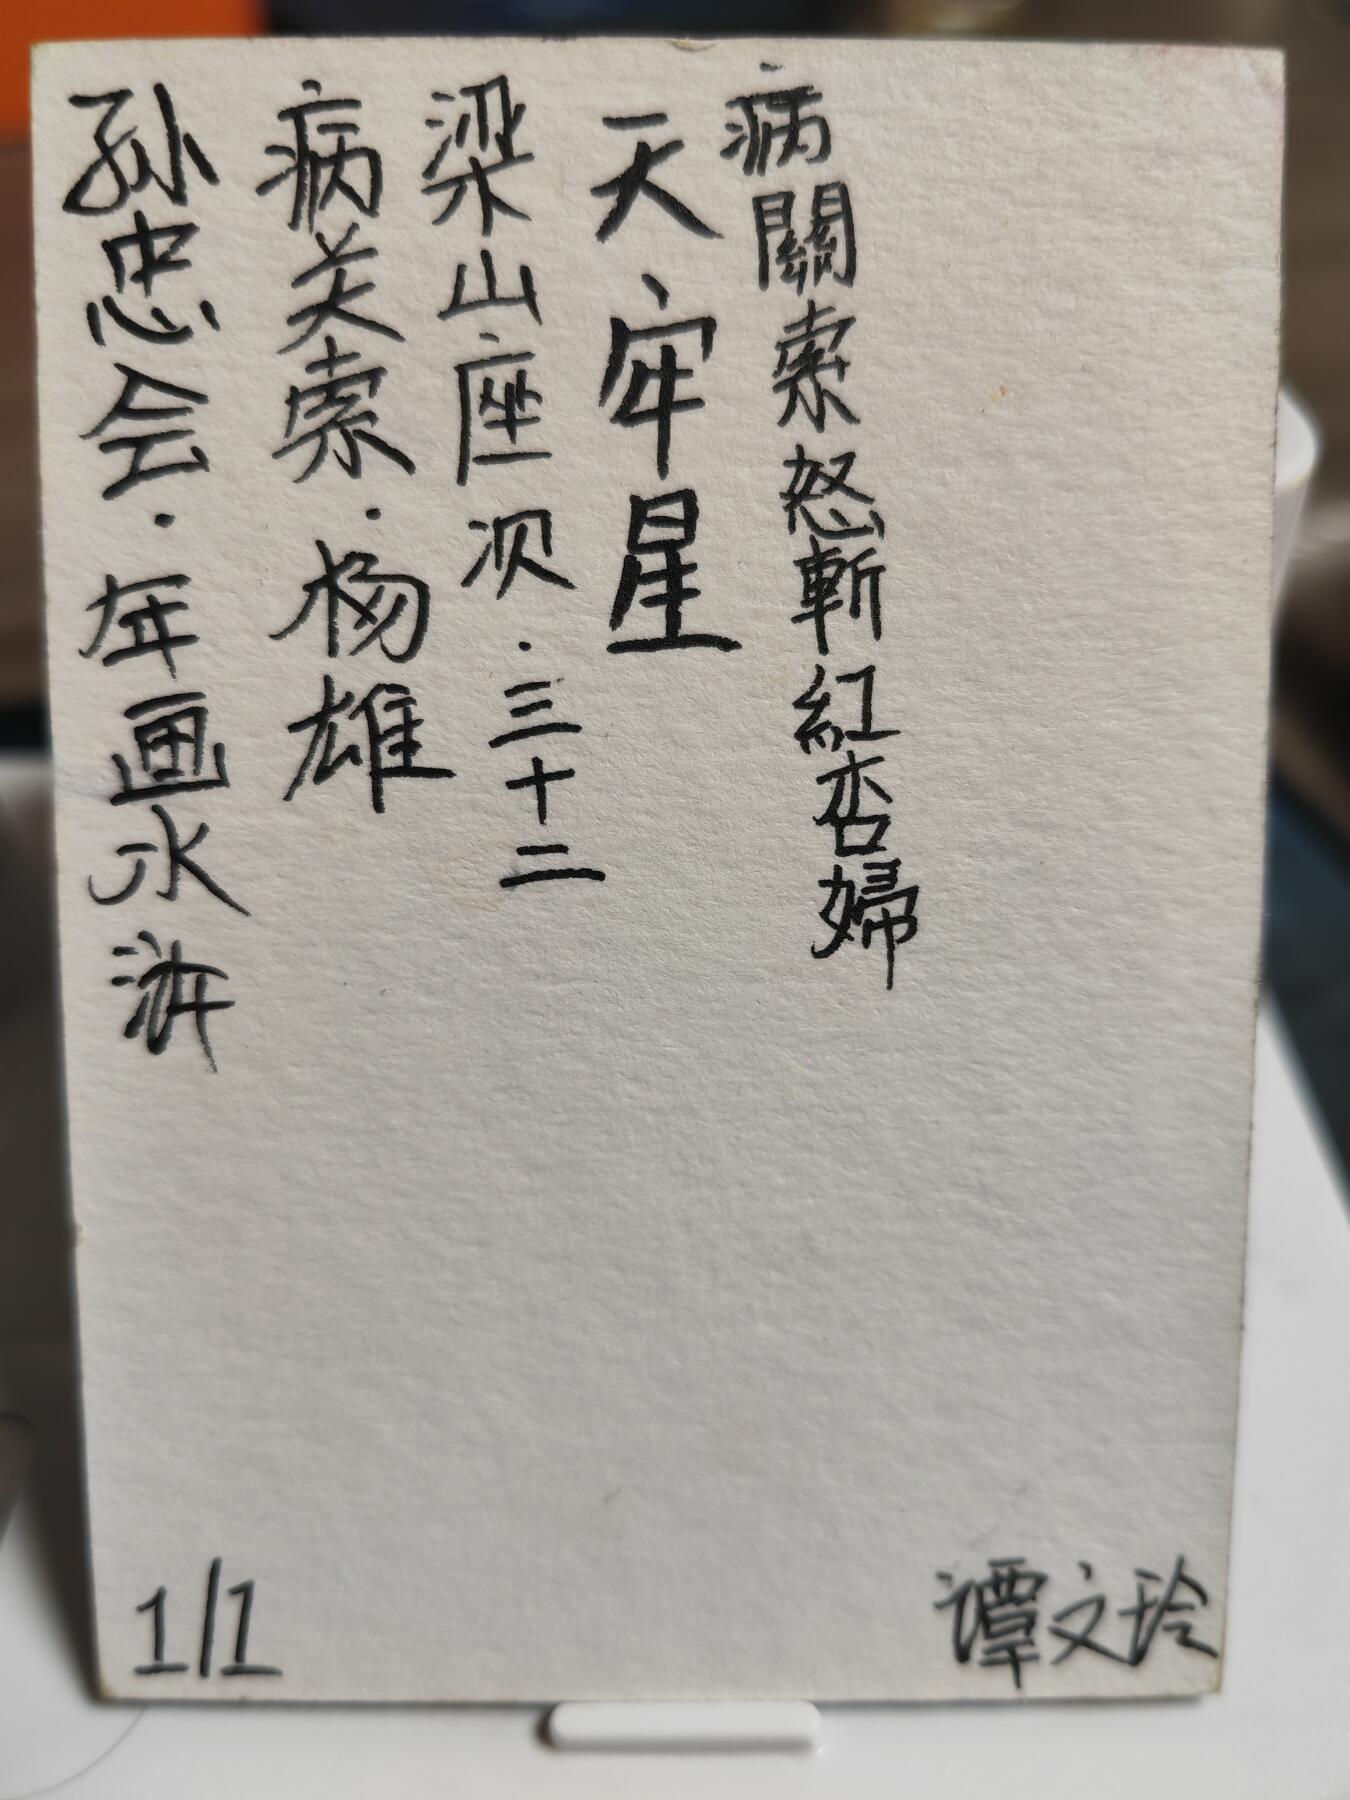 孙忠会·年画水浒
病关索·杨雄
梁山座次·三十二
天牢星
病關索怒斬紅杏婦
1/1
谭文玲